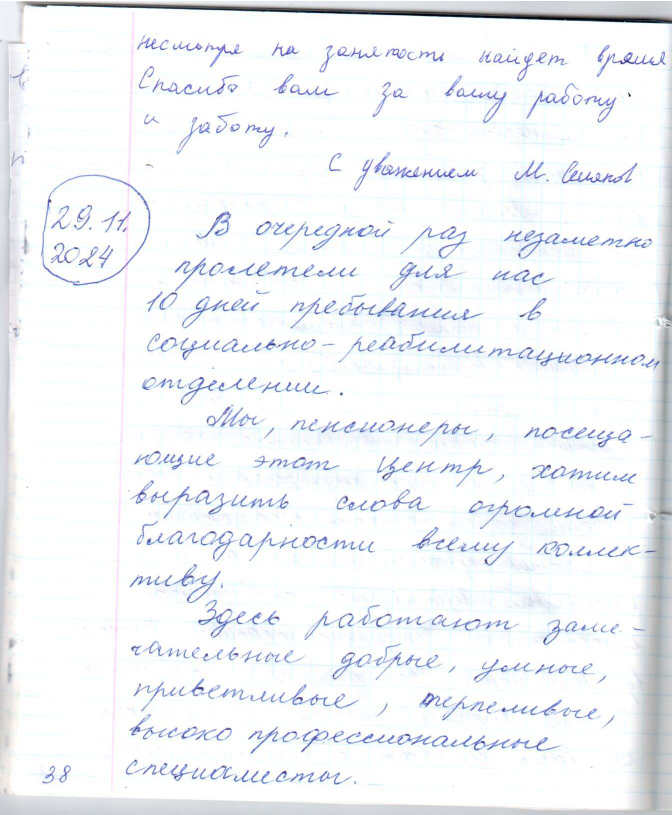 несмотря на занятость найдет время
Спасибо вам за вашу работу
и заботу.
С уважением М.
29.11.
2024
В очередной раз незаметно
пролетели для нас
10 дней пребывания в
социально-реабилитационном
отделении.
Мы, пенсионеры, посеща-
ющие этот Центр, хотим
выразить слова огромной
благодарности всему коллек-
тиву.
Здесь работают заме-
чательные добрые, умные,
приветливые, терпеливые,
высоко профессиональные
специалисты.
38